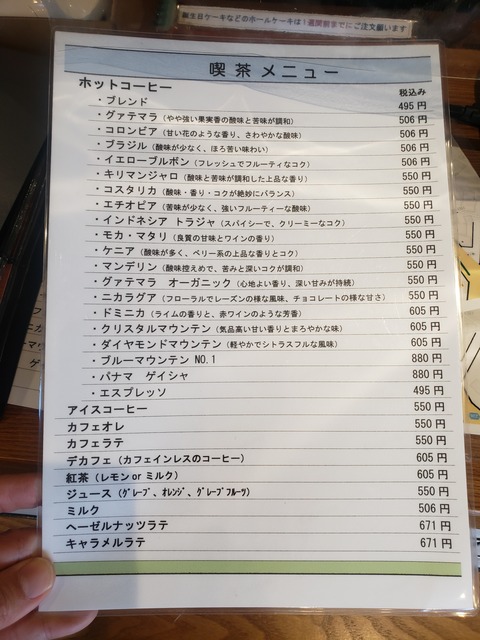 誕生日ケーキなどのホールケーキは1週間前までにご注文願います
喫茶メニュー
ホットコーヒー 税込み
・ブレンド 495円
・グァテマラ（やや強い果実香の酸味と苦味が調和） 506円
・コロンビア（甘い花のような香り、さわやかな酸味） 506円
・ブラジル（酸味が少なく、ほろ苦い味わい） 506円
・イエローブルボン（フレッシュでフルーティなコク） 506円
・キリマンジャロ（酸味と苦味が調和した上品な香り） 550円
・コスタリカ（酸味・香り・コクが絶妙にバランス） 550円
・エチオピア（苦味が少なく、強いフルーティーな酸味） 550円
・インドネシア トラジャ（スパイシーで、クリーミーなコク） 550円
・モカ・マタリ（良質の甘味とワインの香り） 550円
・ケニア（酸味が多く、ベリー系の上品な香りとコク） 550円
・マンデリン（酸味控えめで、苦みと深いコクが調和） 550円
・グァテマラ オーガニック（心地よい香り、深い甘みが持続） 550円
・ニカラグア（フローラルでレーズンの様な風味、チョコレートの様な甘さ） 550円
・ドミニカ（ライムの香りと、赤ワインのような芳香） 605円
・クリスタルマウンテン（気品高い甘い香りとまろやかな味） 605円
・ダイヤモンドマウンテン（軽やかでシトラスフルな風味） 605円
・ブルーマウンテン NO.1 880円
・パナマ ゲイシャ 880円
・エスプレッソ 495円
アイスコーヒー 550円
カフェオレ 550円
カフェラテ 550円
デカフェ（カフェインレスのコーヒー） 605円
紅茶（レモン or ミルク） 605円
ジュース（ｸﾞﾚｰﾌﾟ、ｵﾚﾝｼﾞ、ｸﾞﾚｰﾌﾟﾌﾙｰﾂ） 550円
ミルク 506円
ヘーゼルナッツラテ 671円
キャラメルラテ 671円